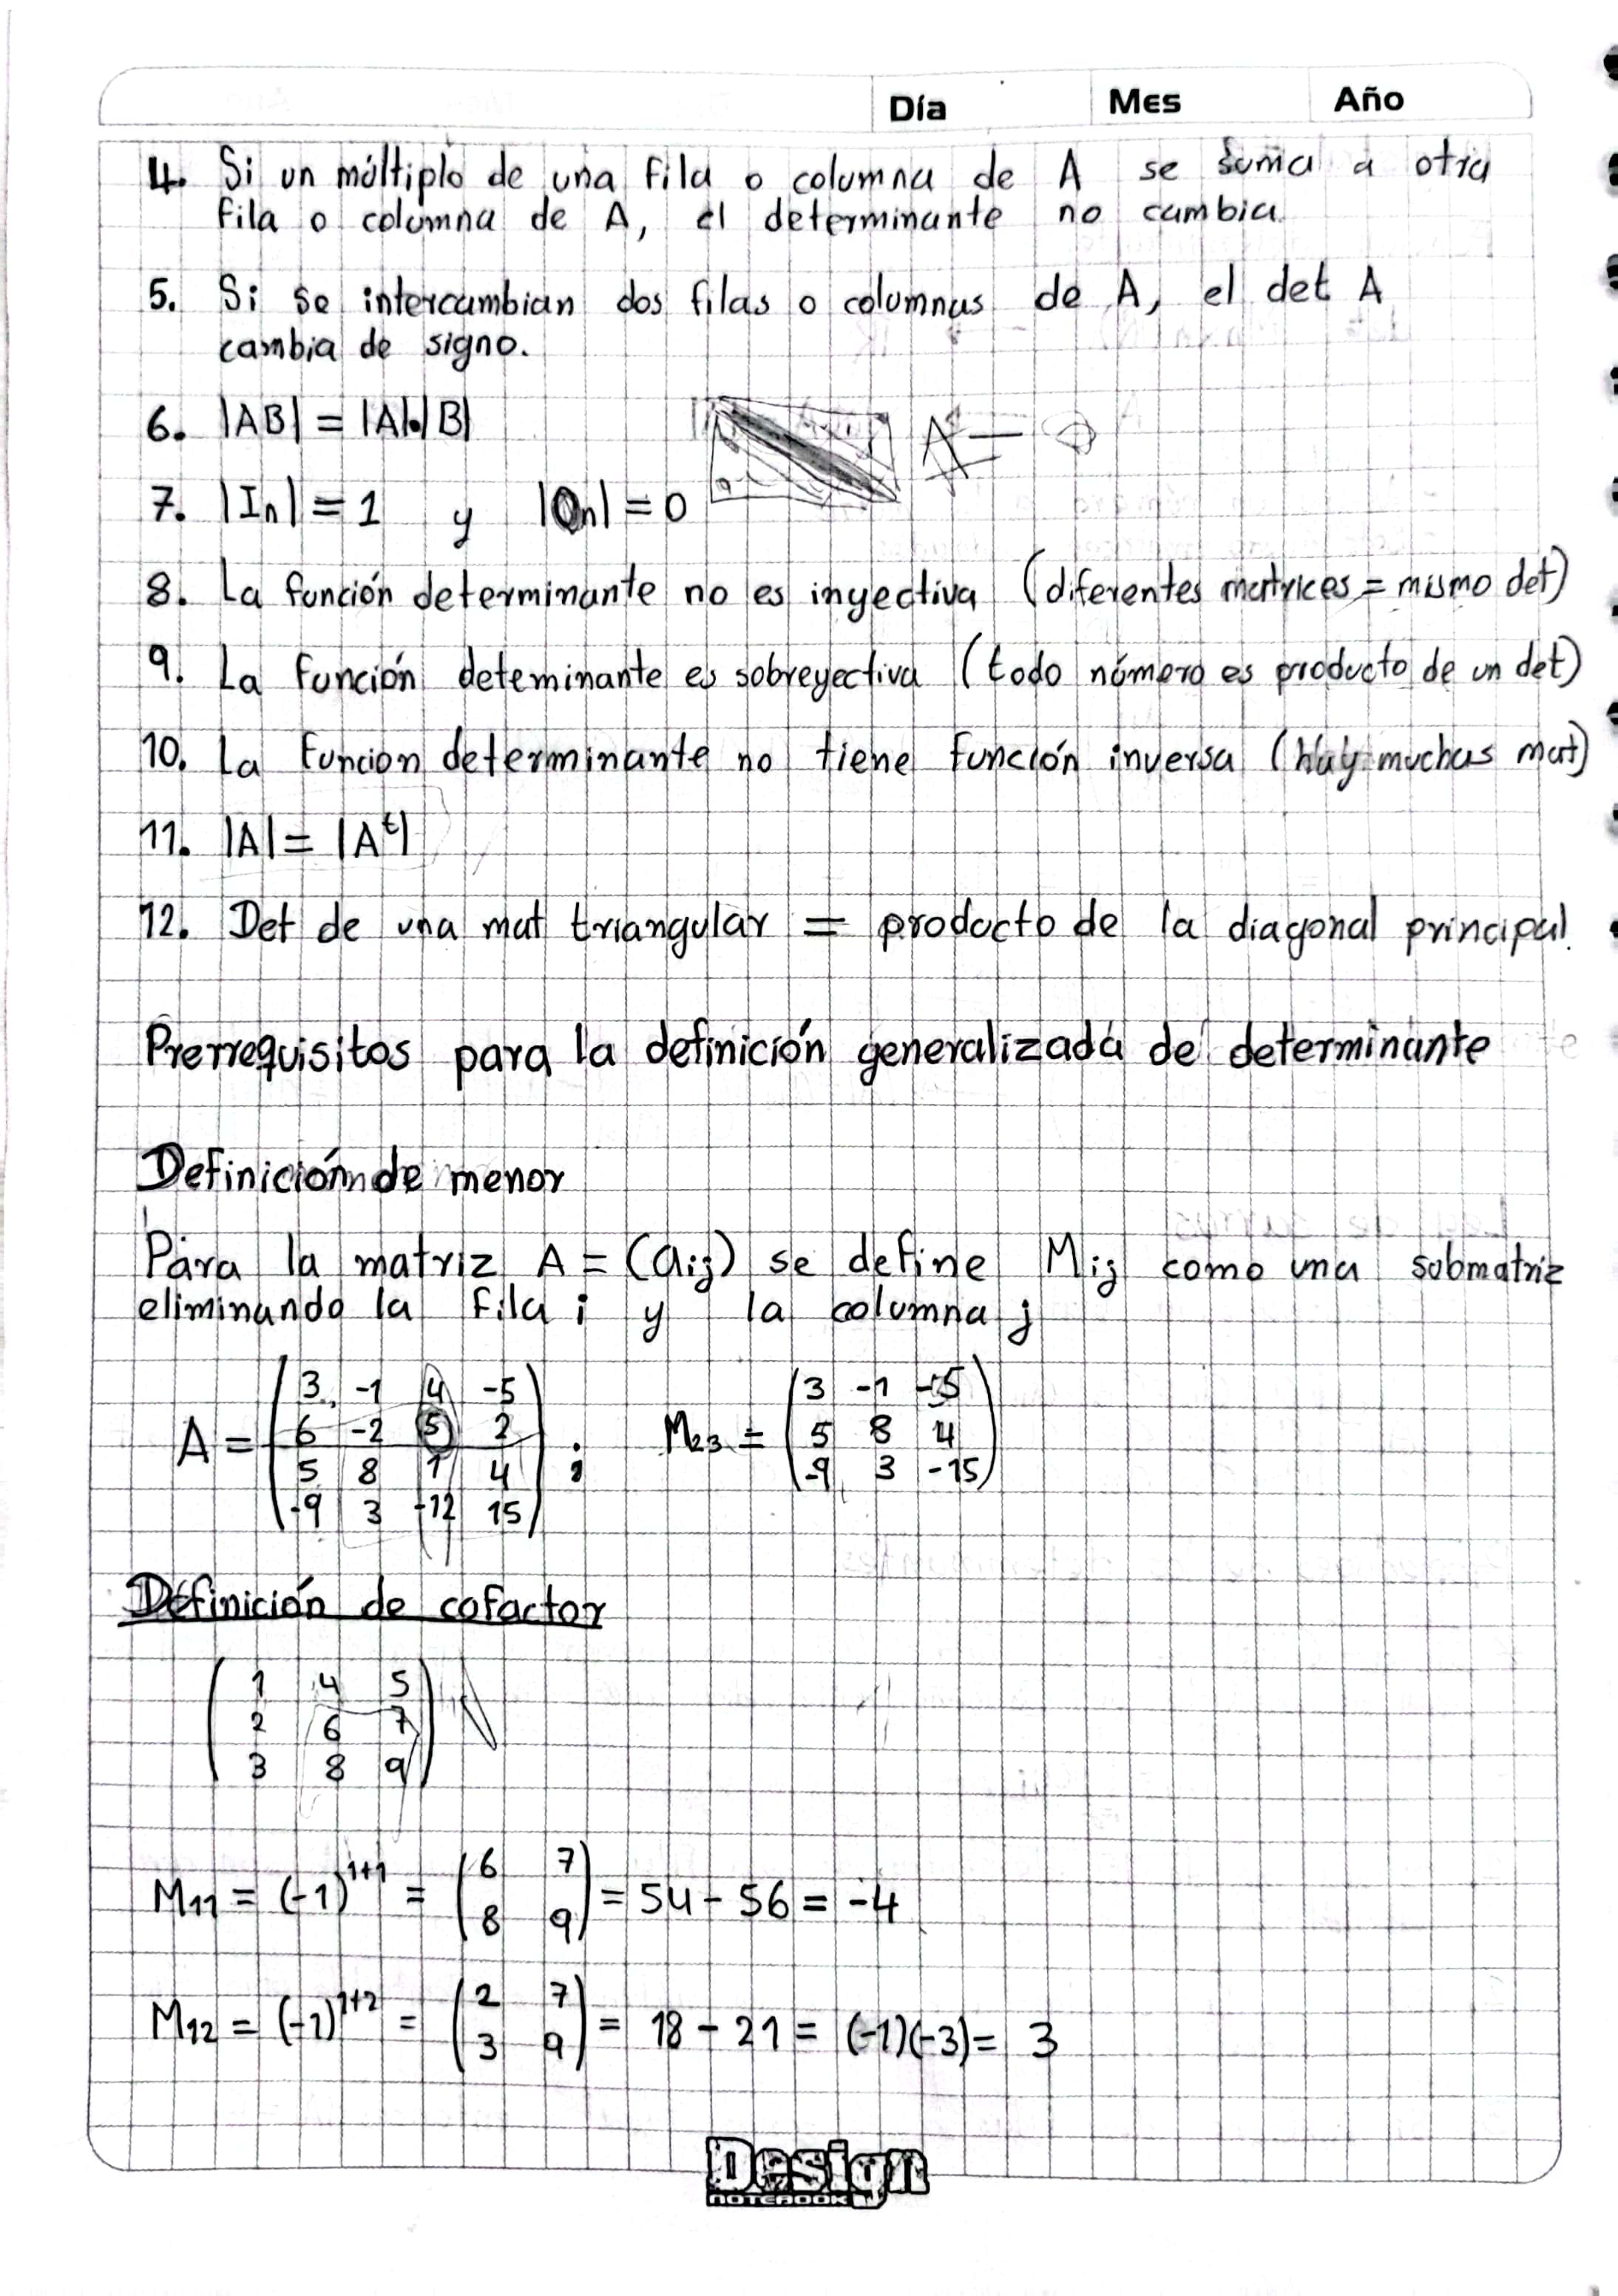 Día Mes Año
4. Si un múltiplo de una fila o columna de A se suma a otra
fila o columna de A, el determinante no cambia.
5. Si se intercambian dos filas o columnas de A, el det A
cambia de signo.
6. |AB| = |A|·|B|
7. |In| = 1 y |On| = 0
8. La función determinante no es inyectiva (diferentes matrices = mismo det)
9. La función deteminante es sobreyectiva (todo número es producto de un det)
10. La funcion determinante no tiene función inversa (Hay muchas mat)
11. |A| = |Aᵗ|
12. Det de una mat triangular = producto de la diagonal principal.
Prerrequisitos para la definición generalizada de determinante
Definición de menor
Para la matriz A = (aij) se define Mij como una submatriz
eliminando la fila i y la columna j
A = (3 -1 4 -5
6 -2 5 2
5 8 1 4
-9 3 -12 15) ; M23 = (3 -1 -5
5 8 4
-9 3 -15)
Definición de cofactor
(1 4 5
2 6 7
3 8 9)
M11 = (-1)¹⁺¹ = (6 7
8 9) = 54 - 56 = -4
M12 = (-1)¹⁺² = (2 7
3 9) = 18 - 21 = (-1)(-3) = 3
Design
NOTEBOOK